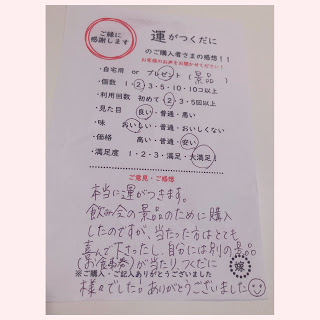 ご縁に
感謝します
運がつくだに
のご購入者さまの感想！！
お客様のお声をお聞かせください！
・自宅用 or プレゼント（景品）
・個数 1・2・3・5・10・10コ以上
・利用回数 初めて・2・3・5回以上
・見た目 良い・普通・悪い
・味 おいしい・普通・おいしくない
・価格 高い・普通・安い
・満足度 1・2・3・満足・大満足！
ご意見・ご感想
本当に運がつきます。
飲み会の景品のために購入
したのですが、当たった方はとても
喜んで下さったし、自分には別の景品
(お食事券)が当たり、つくだに
※ご購入・ご記入ありがとうございました
様々でした。ありがとうございました
嫁